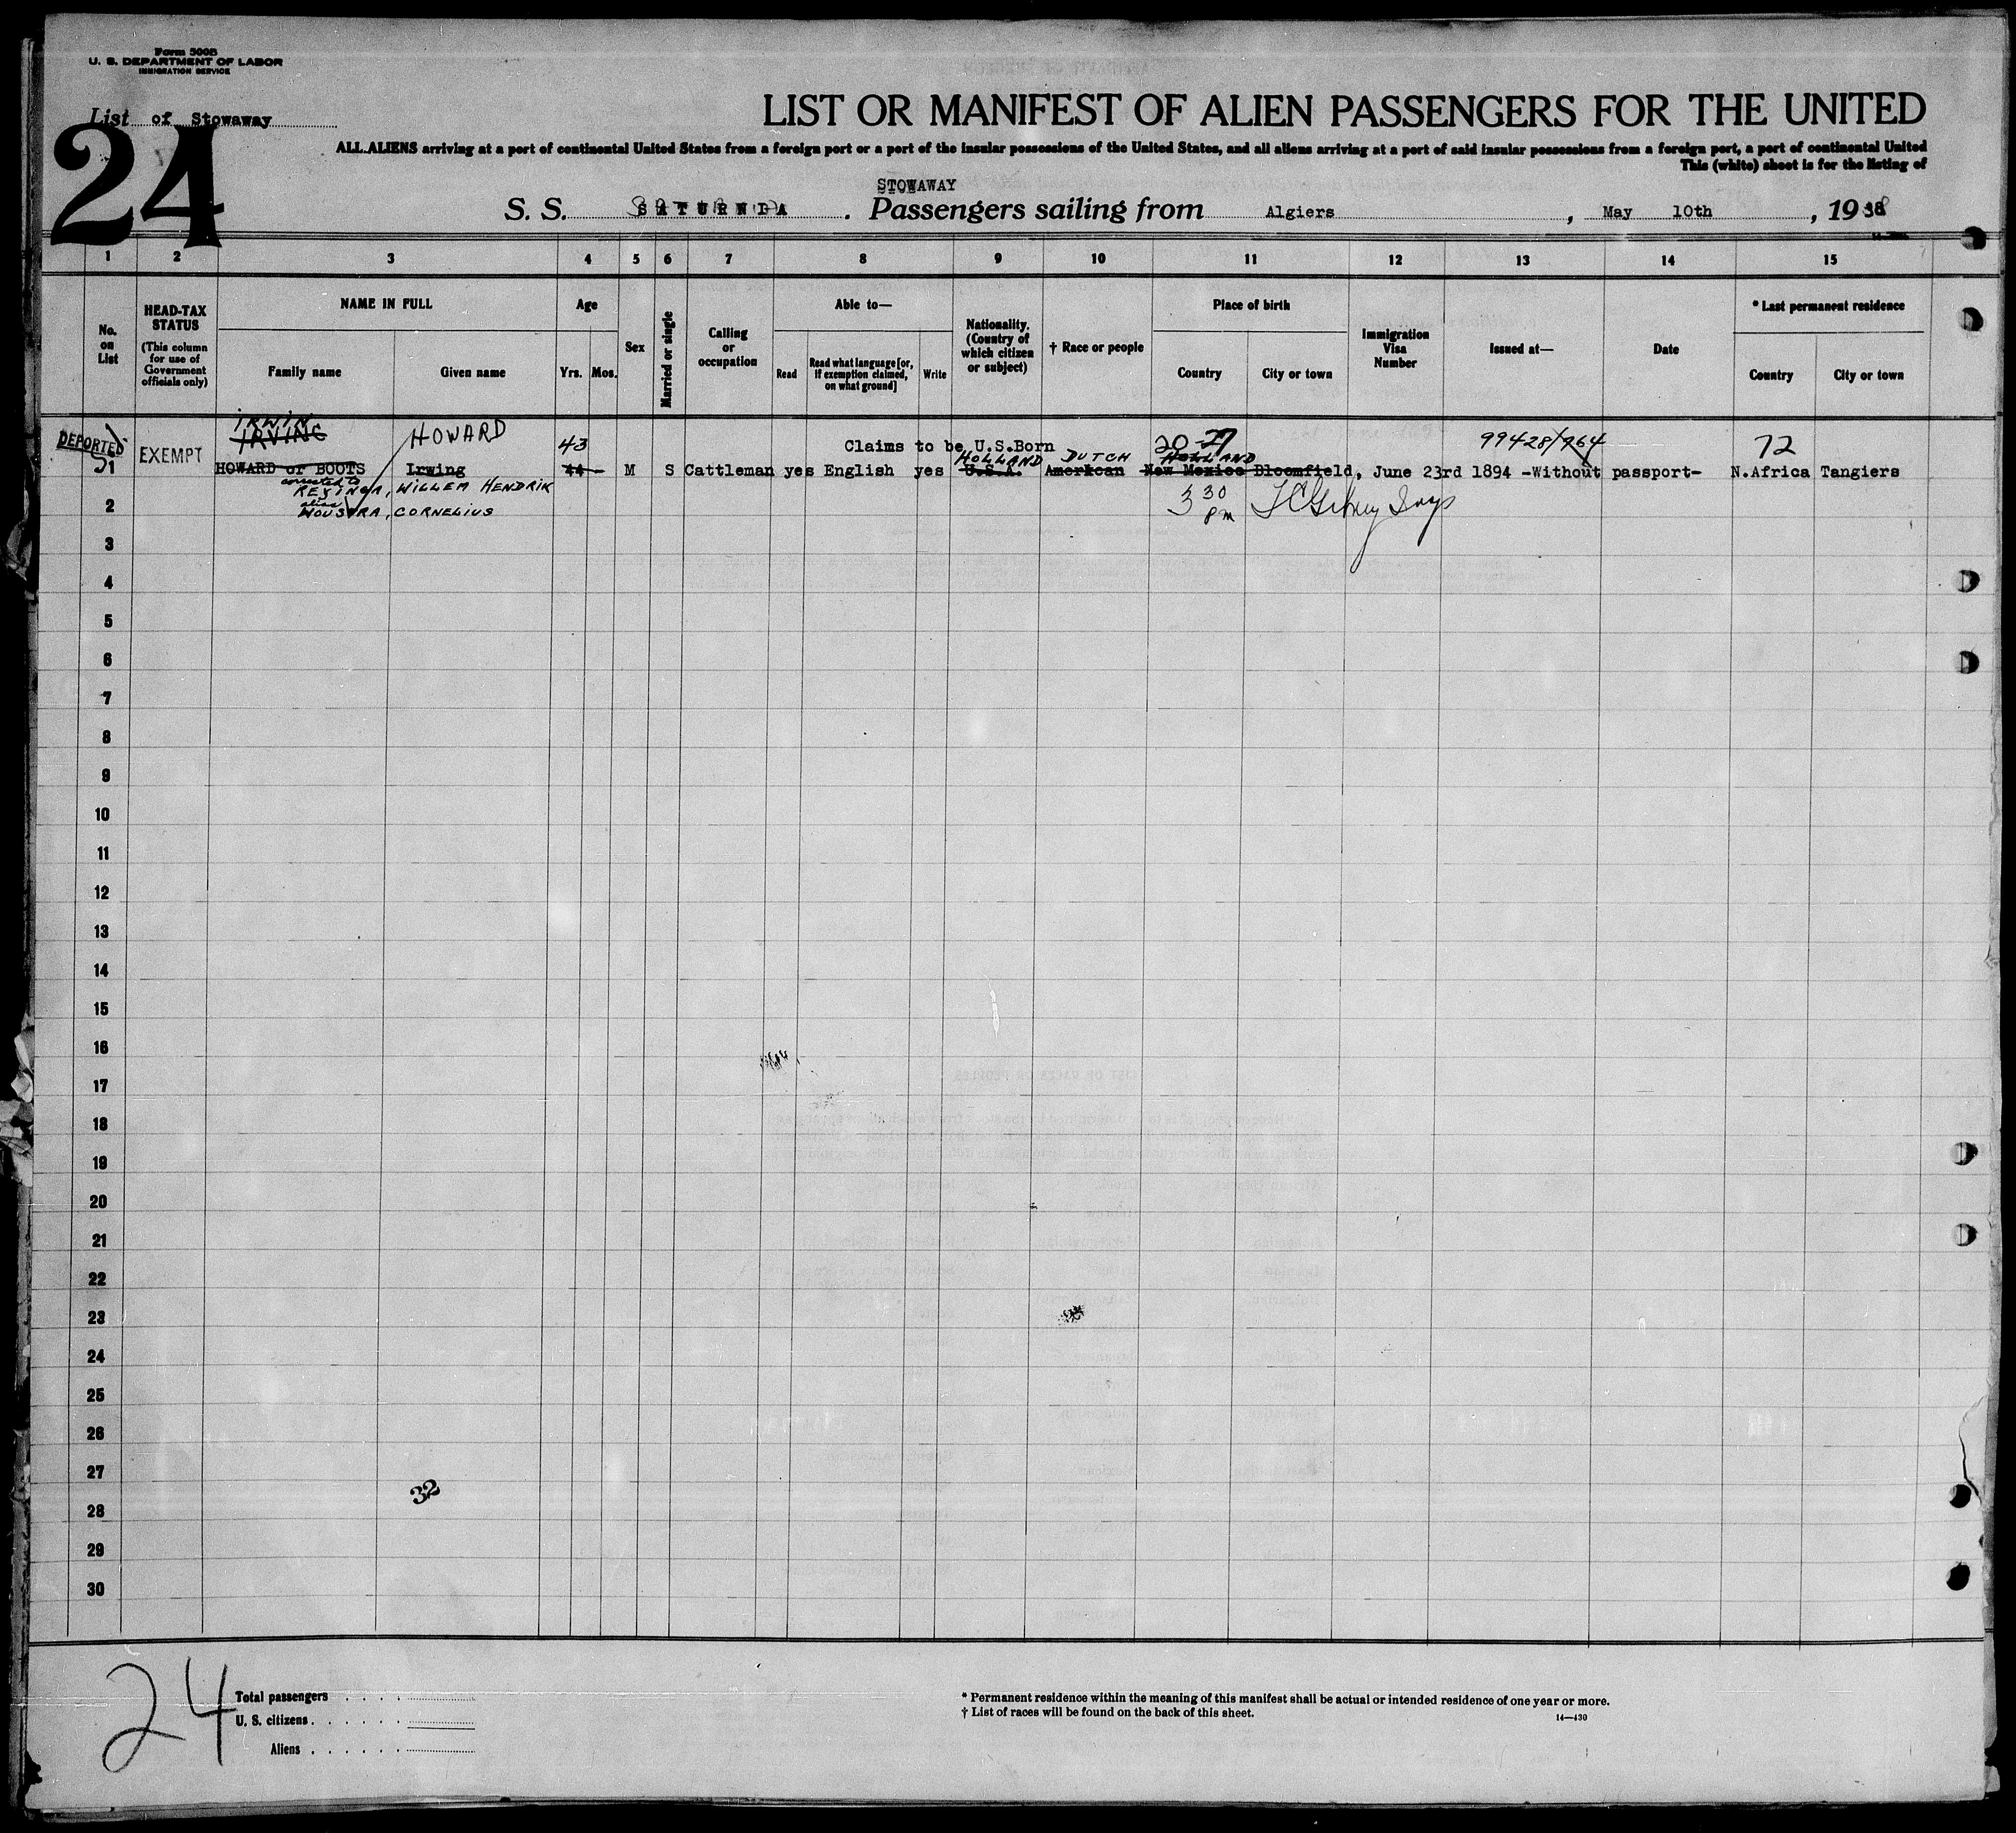 Form 500B
U. S. DEPARTMENT OF LABOR
IMMIGRATION SERVICE
List of Stowaway
24
LIST OR MANIFEST OF ALIEN PASSENGERS FOR THE UNITED
ALL ALIENS arriving at a port of continental United States from a foreign port or a port of the insular possessions of the United States, and all aliens arriving at a port of said insular possessions from a foreign port, a port of continental United
This (white) sheet is for the listing of
STOWAWAY
S. S. SATURNIA . Passengers sailing from Algiers , May 10th , 1938
1 2 3 4 5 6 7 8 9 10 11 12 13 14 15
No. on List
HEAD-TAX STATUS (This column for use of Government officials only)
NAME IN FULL
Family name
Given name
Age
Yrs. Mos.
Sex
Married or single
Calling or occupation
Able to—
Read
Read what language [or, if exemption claimed, on what ground]
Write
Nationality. (Country of which citizen or subject)
† Race or people
Place of birth
Country
City or town
Immigration Visa Number
Issued at—
Date
* Last permanent residence
Country
City or town
IRWIN
DEPORTED IRVING HOWARD 43 Claims to be U.S.Born 20-27 99428/964 72
EXEMPT HOLLAND DUTCH HOLLAND
1 HOWARD or BOOTS Irwing 44 - M S Cattleman yes English yes U.S.A. American New Mexico Bloomfield, June 23rd 1894 -Without passport- N.Africa Tangiers
corrected to
WILLEM HENDRIK
alias
2 CORNELIUS 30 PM
3
4
5
6
7
8
9
10
11
12
13
14
15
16
17
18
19
20
21
22
23
24
25
26
27
32
28
29
30
24
Total passengers
U. S. citizens
Aliens
* Permanent residence within the meaning of this manifest shall be actual or intended residence of one year or more.
† List of races will be found on the back of this sheet.
14—430